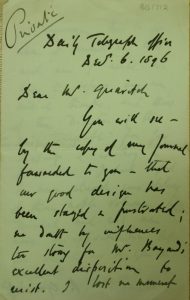 Private
Daily Telegraph Office
Dec. 6. 1896
Dear Mr. Quaritch
You will see –
by the copy of my Journal
forwarded to you – that
our good design has
been stayed & frustrated;
no doubt by influences
too strong for Mr. Bayard's
excellent disposition to
resist. I lost no moment